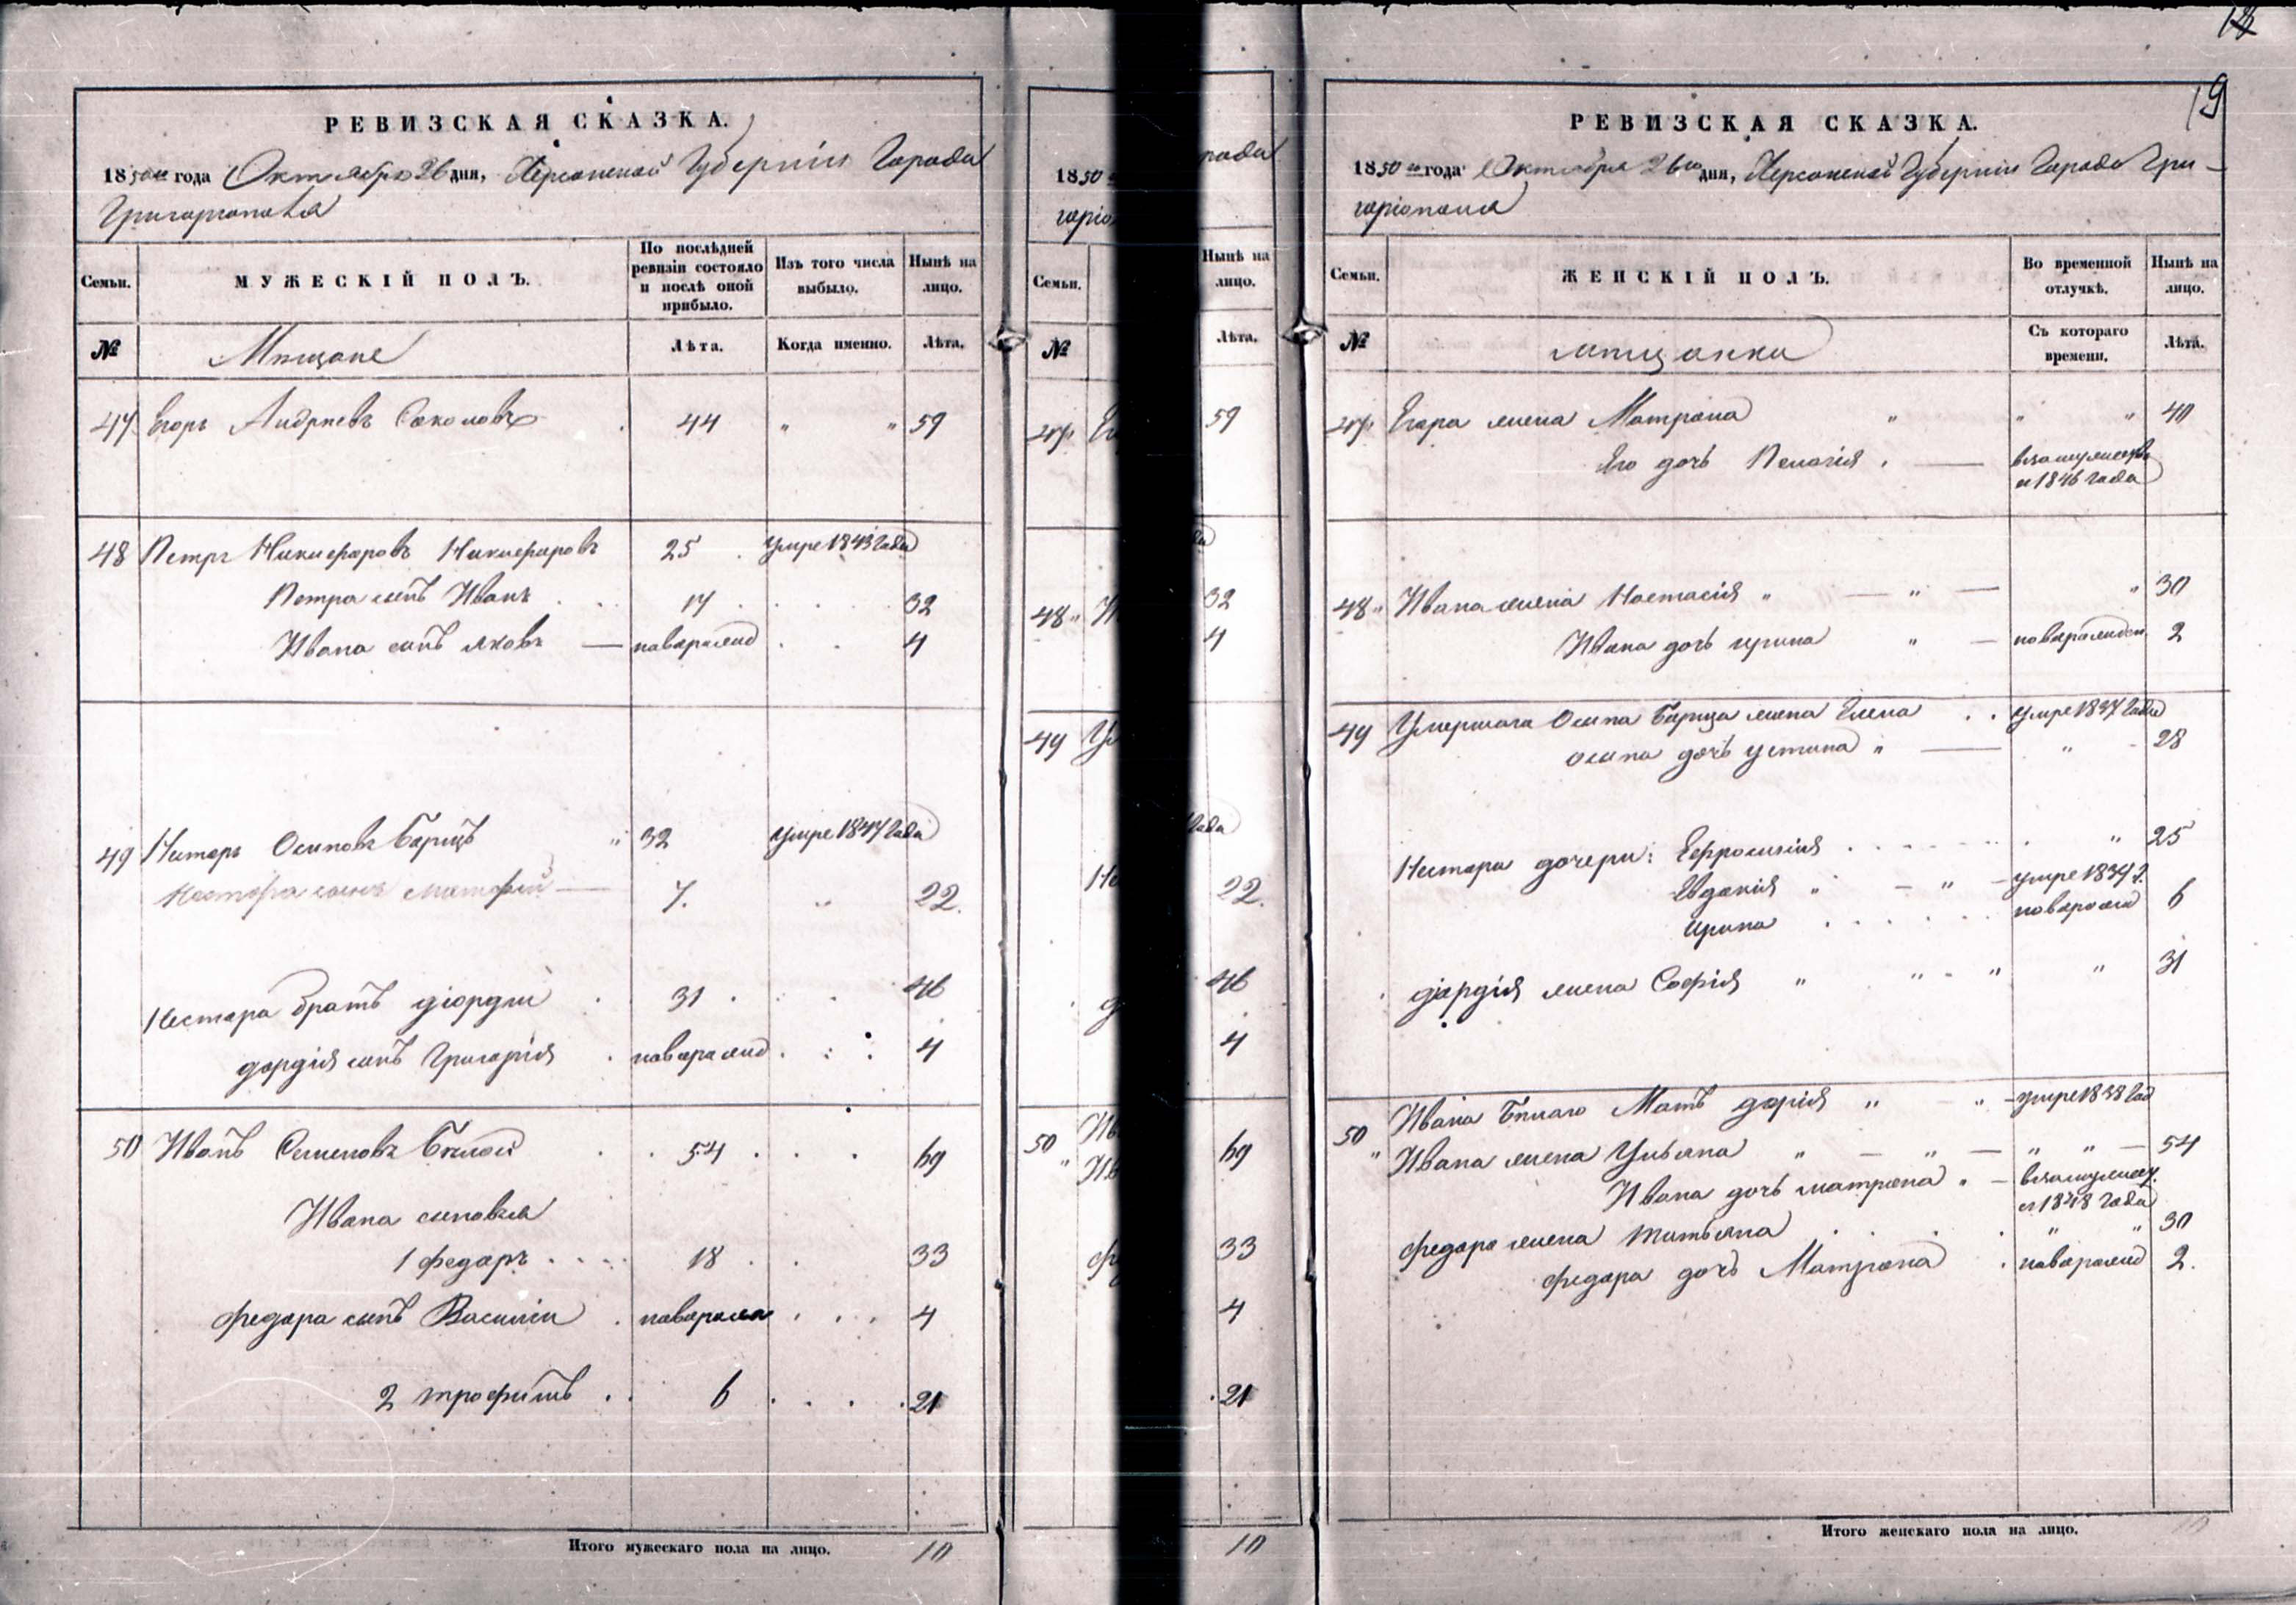 18
19
РЕВИЗСКАЯ СКАЗКА.
1850го года Октября 26 дня, Херсонской Губерніи Города
Григоріополя
Семьи.
МУЖЕСКІЙ ПОЛЪ.
По послѣдней ревизіи состояло и послѣ оной прибыло.
Изъ того числа выбыло.
Нынѣ на лицо.
№
Мѣщане
Лѣта.
Когда именно.
Лѣта.
47 Егоръ Андреевъ Соколовъ 44 " " 59
48 Петръ Никифоровъ Никифоровъ 25 умре 1843 года
Петра сынъ Иванъ 17 32
Ивана сынъ Яковъ — наварожд 4
49 Нестаръ Осиповъ Барицъ " 32 умре 1847 года
Нестора сынъ Матфей — 7. " 22.
Нестара братъ Діордій 31 46
Діордія сынъ Григорія наварожд 4
50 Иванъ Семеновъ Белой 54 69
Ивана сыновья
1 Федаръ 18 33
Федара сынъ Василій наварожд 4
2 Трофимъ 6 21
Итого мужескаго пола на лицо. 10
1850
рода
гаріо
Семьи.
Нынѣ на лицо.
№
Лѣта.
47 Ег 59
48 " И 32
4
49 Ум
года
Не 22.
46
Д
4
50 Ив 69
" Ив
Ф 33
4
21
10
РЕВИЗСКАЯ СКАЗКА.
1850го года Октября 26го дня, Херсонской Губерніи Города Гри-
гаріополя
Семьи.
ЖЕНСКІЙ ПОЛЪ.
Во временной отлучкѣ.
Нынѣ на лицо.
№
мѣщанки
Съ котораго времени.
Лѣта.
47 Егара жена Матрона " " " 40
Его дочь Пелагія — взамужестве
с 1846 года
48 " Ивана жена Настасія " — " — " 30
Ивана дочь Ирина " — наварожден 2
49 Умершаго Осипа Барица жена Елена умре 1847 года
Осипа дочь Устина " — " - 28
Нестара дочери: Ефросинія " 25
Евдокія " — " — умре 1839 г.
Ирина наварожд 6
Діордія жена Софія " " - " " 31
50 Ивана Белаго Мать Дарія " " — умре 1838 год
" Ивана жена Ульяна " — " — " " — 54
Ивана дочь Матрона " — взамужест.
с 1848 года
Федара жена Татьяна " " 30
Федара дочь Матрона наварожд 2.
Итого женскаго пола на лицо. 10